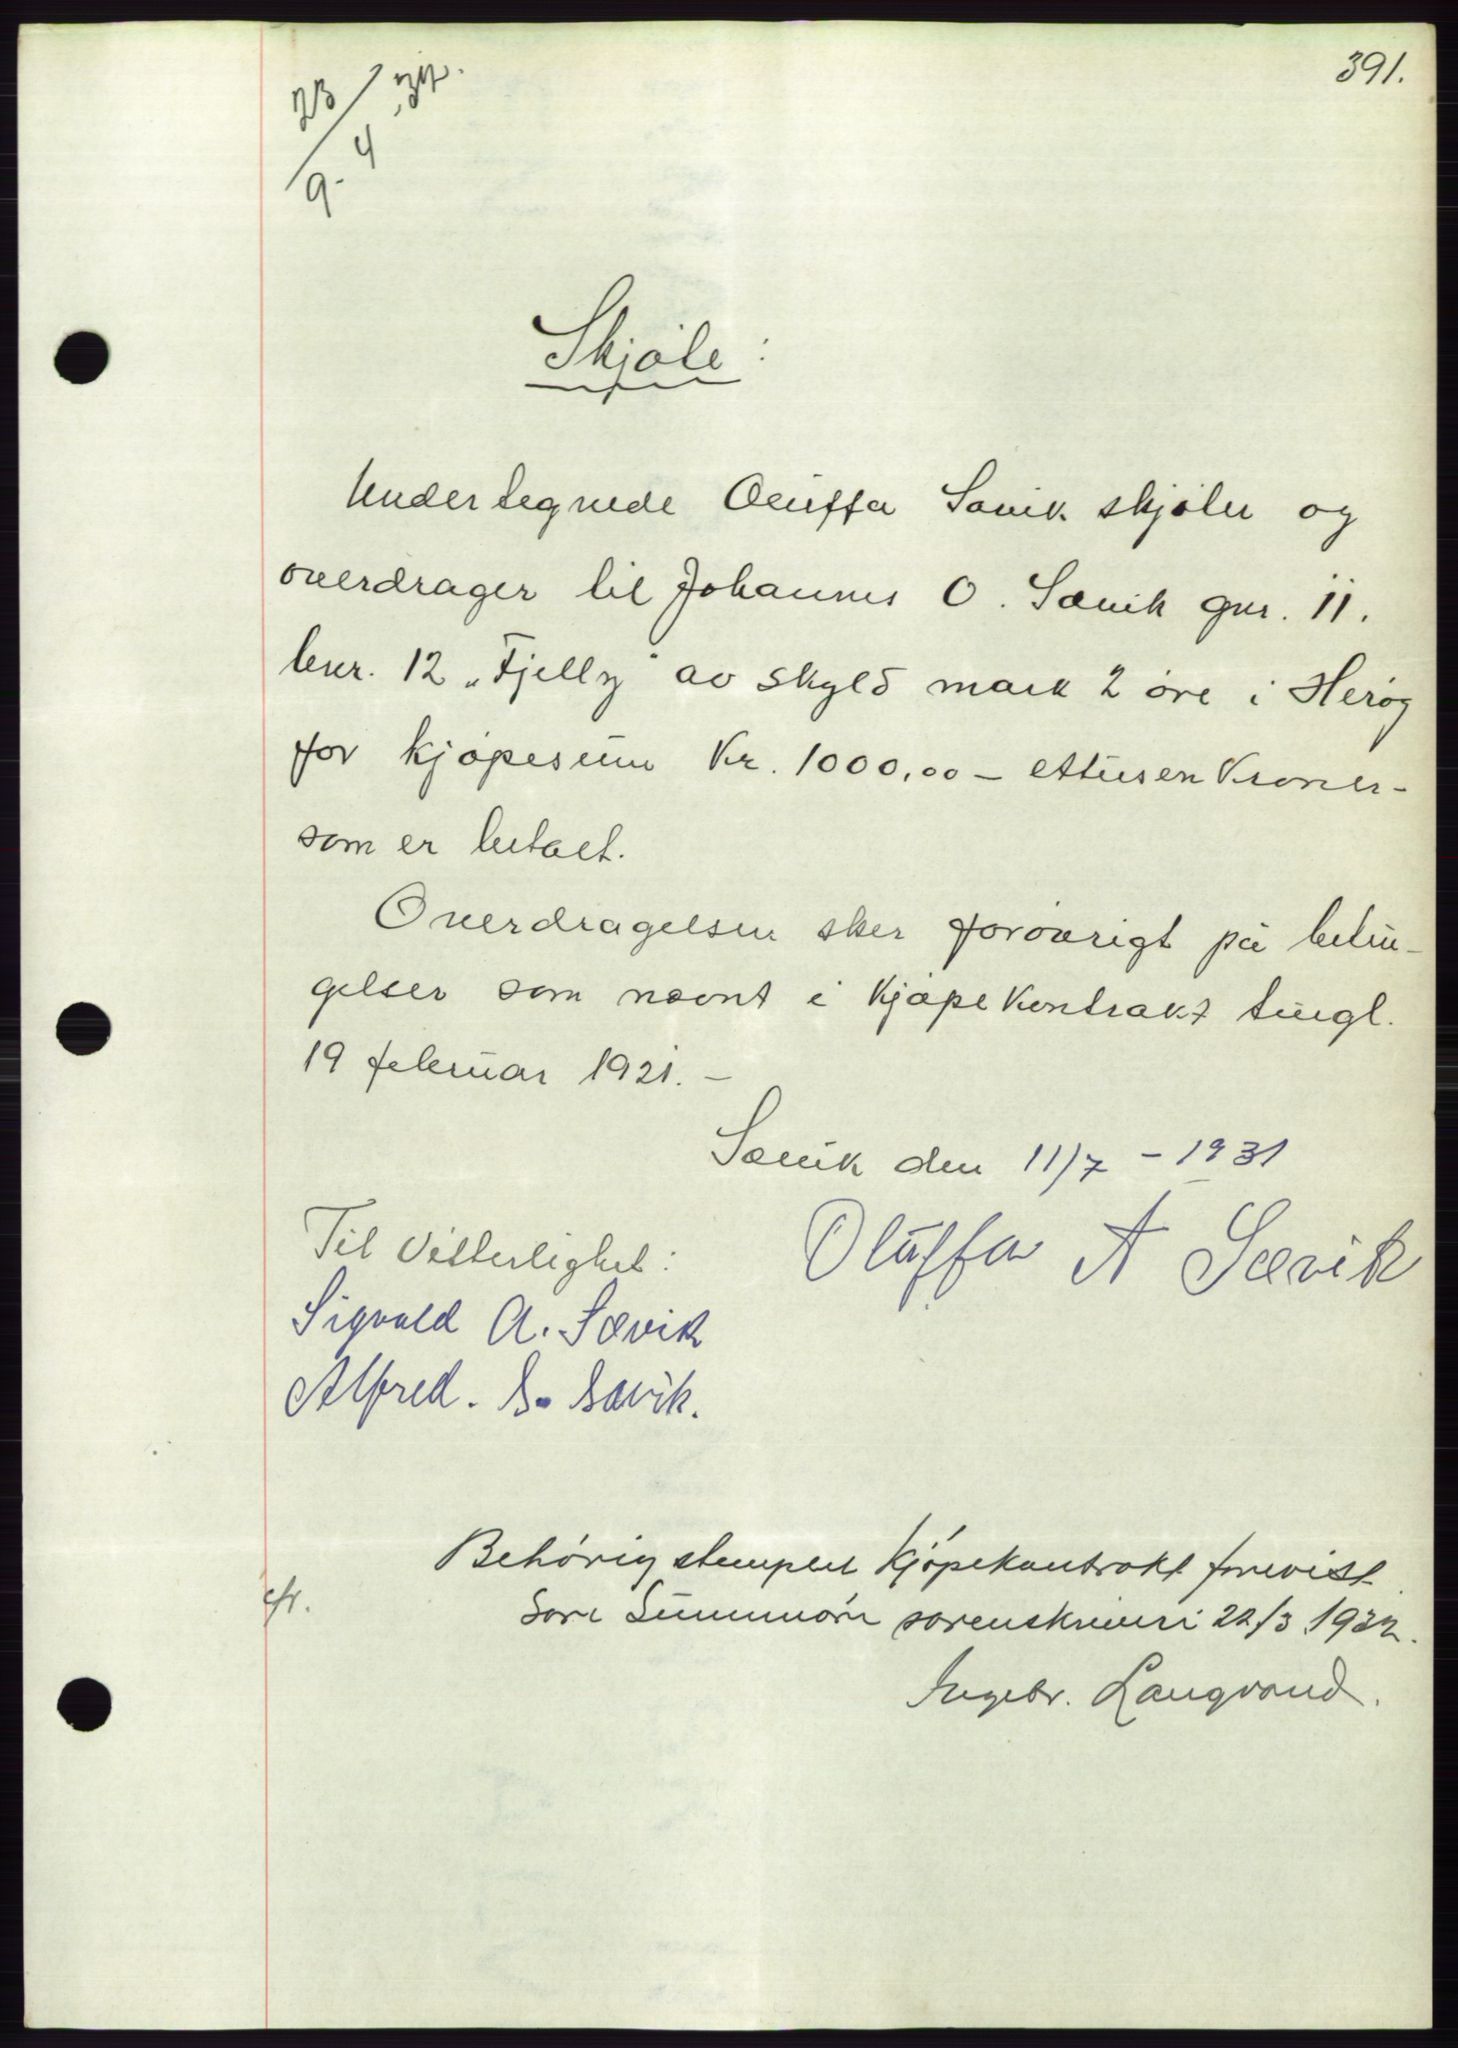 391.
23/9-4 32.
Skjøte:
Undertegnede Oluffa Sævik skjøter og
overdrager til Johannes O. Sævik gnr. 11.
bnr. 12 „Fjelly" av skyld mark 2 øre i Herøy
for kjøpesum Kr. 1000,00 – ettusen kroner –
som er betalt.
Overdragelsen sker forøvrigt på betin-
gelser som nævnt i kjøpekontrakt tingl.
19 februar 1921. –
Sævik den 11/7 – 1931
Til Vitterlighet:
Oluffa A Sævik
Sigvald A. Sævik
Alfred. S. Sævik.
Behørig stemplet kjøpekontrakt forevist
cfr.
Søre Sunnmøre sorenskriveri 22/3 1932.
Ingebr. Langvand.